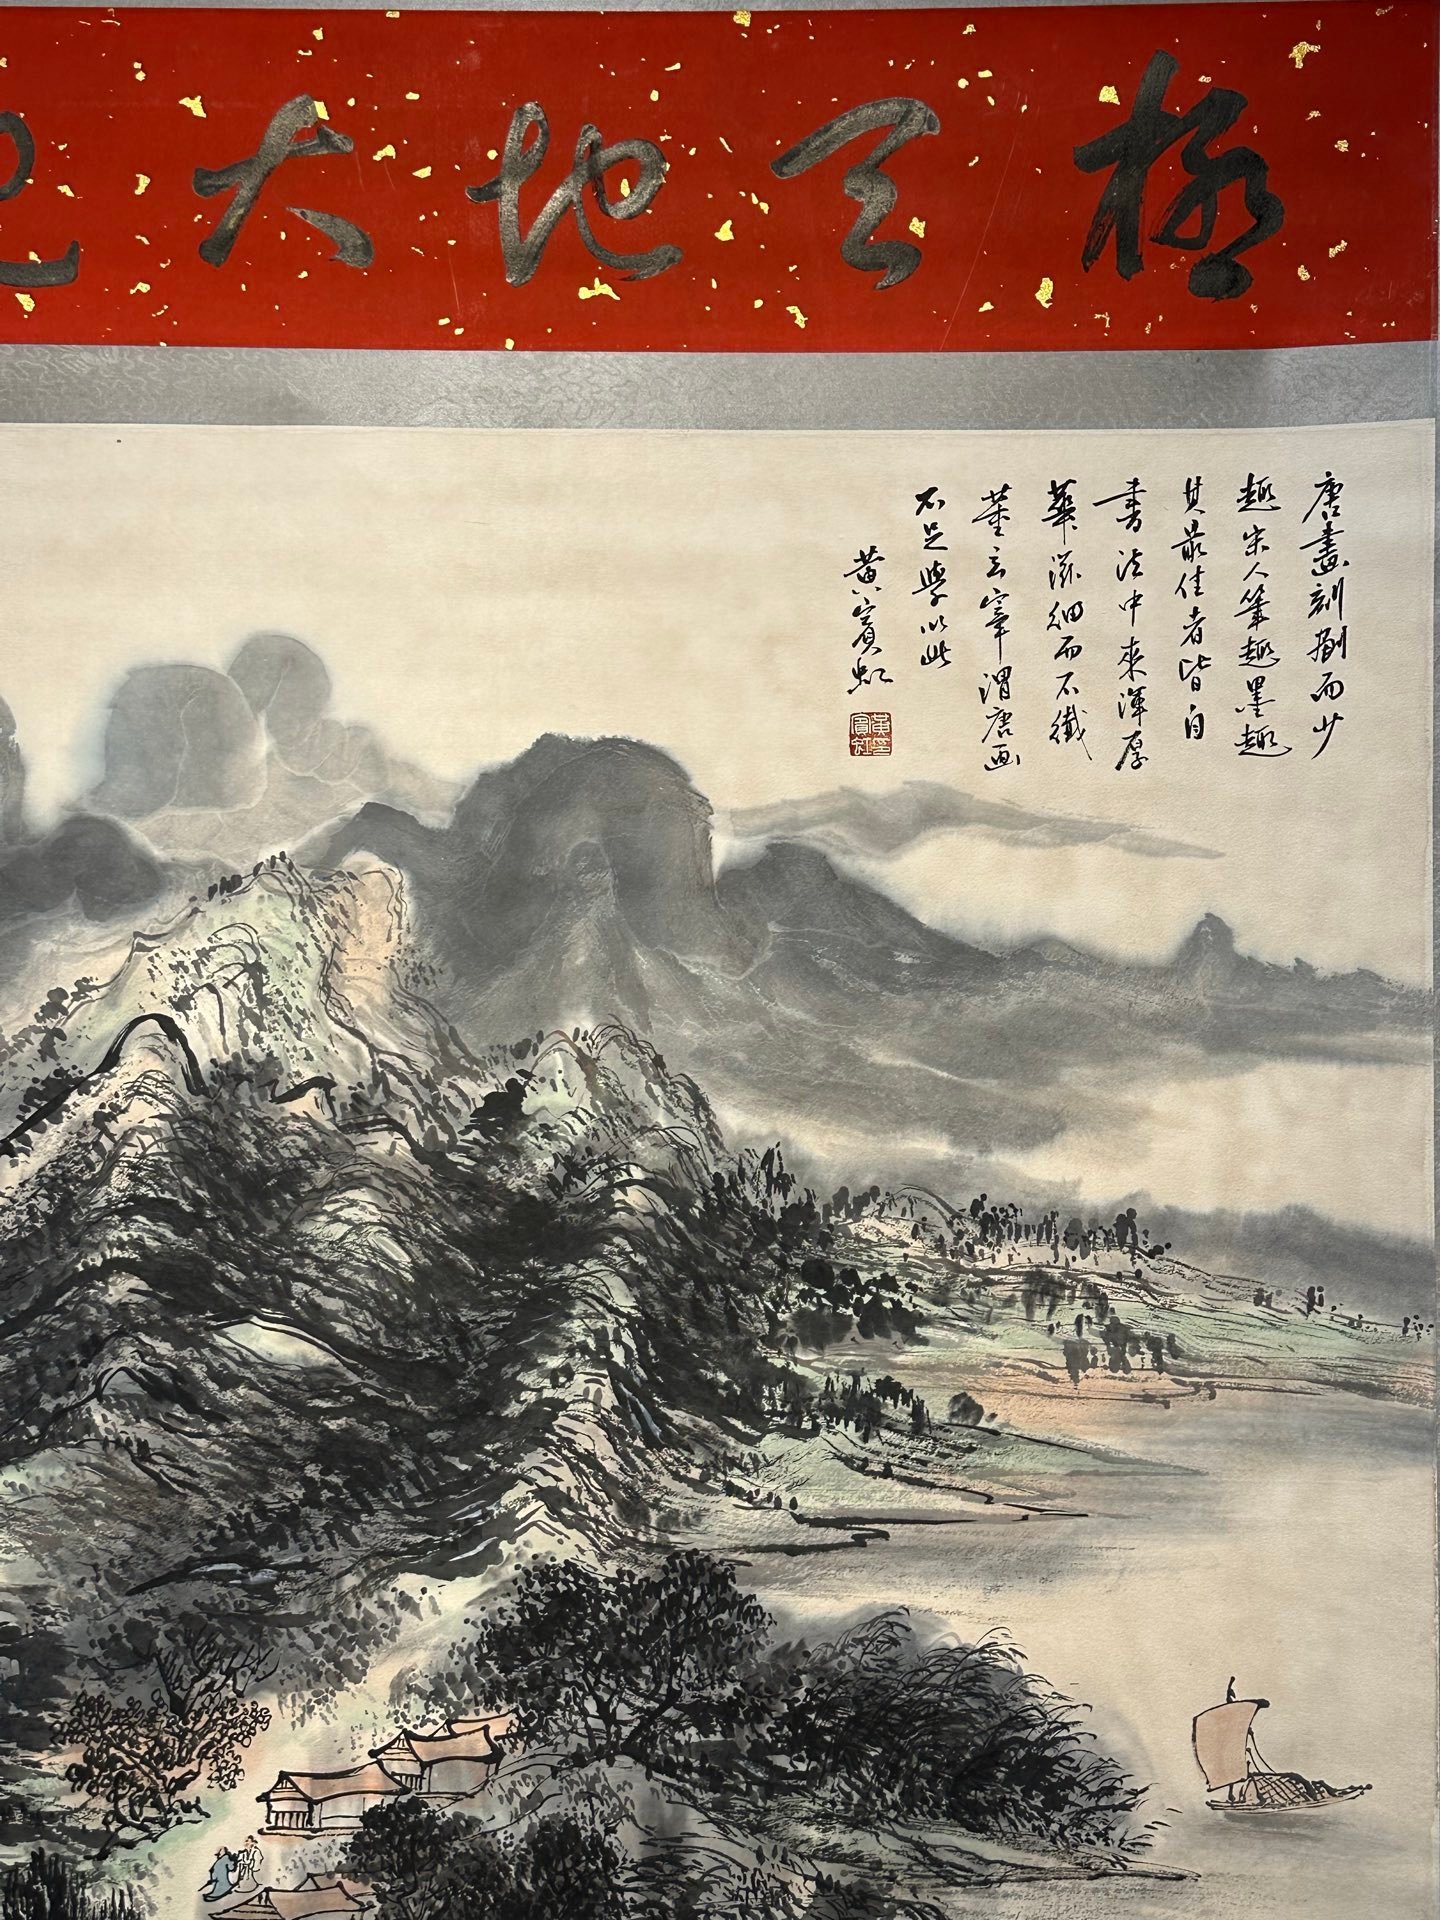 極天地大
唐畫刻劃而少
趣宋人筆趣墨趣
其最佳者皆自
書法中來渾厚
華滋細而不纖
董玄宰謂唐画
不足學以此
黄賓虹
黃賓虹印